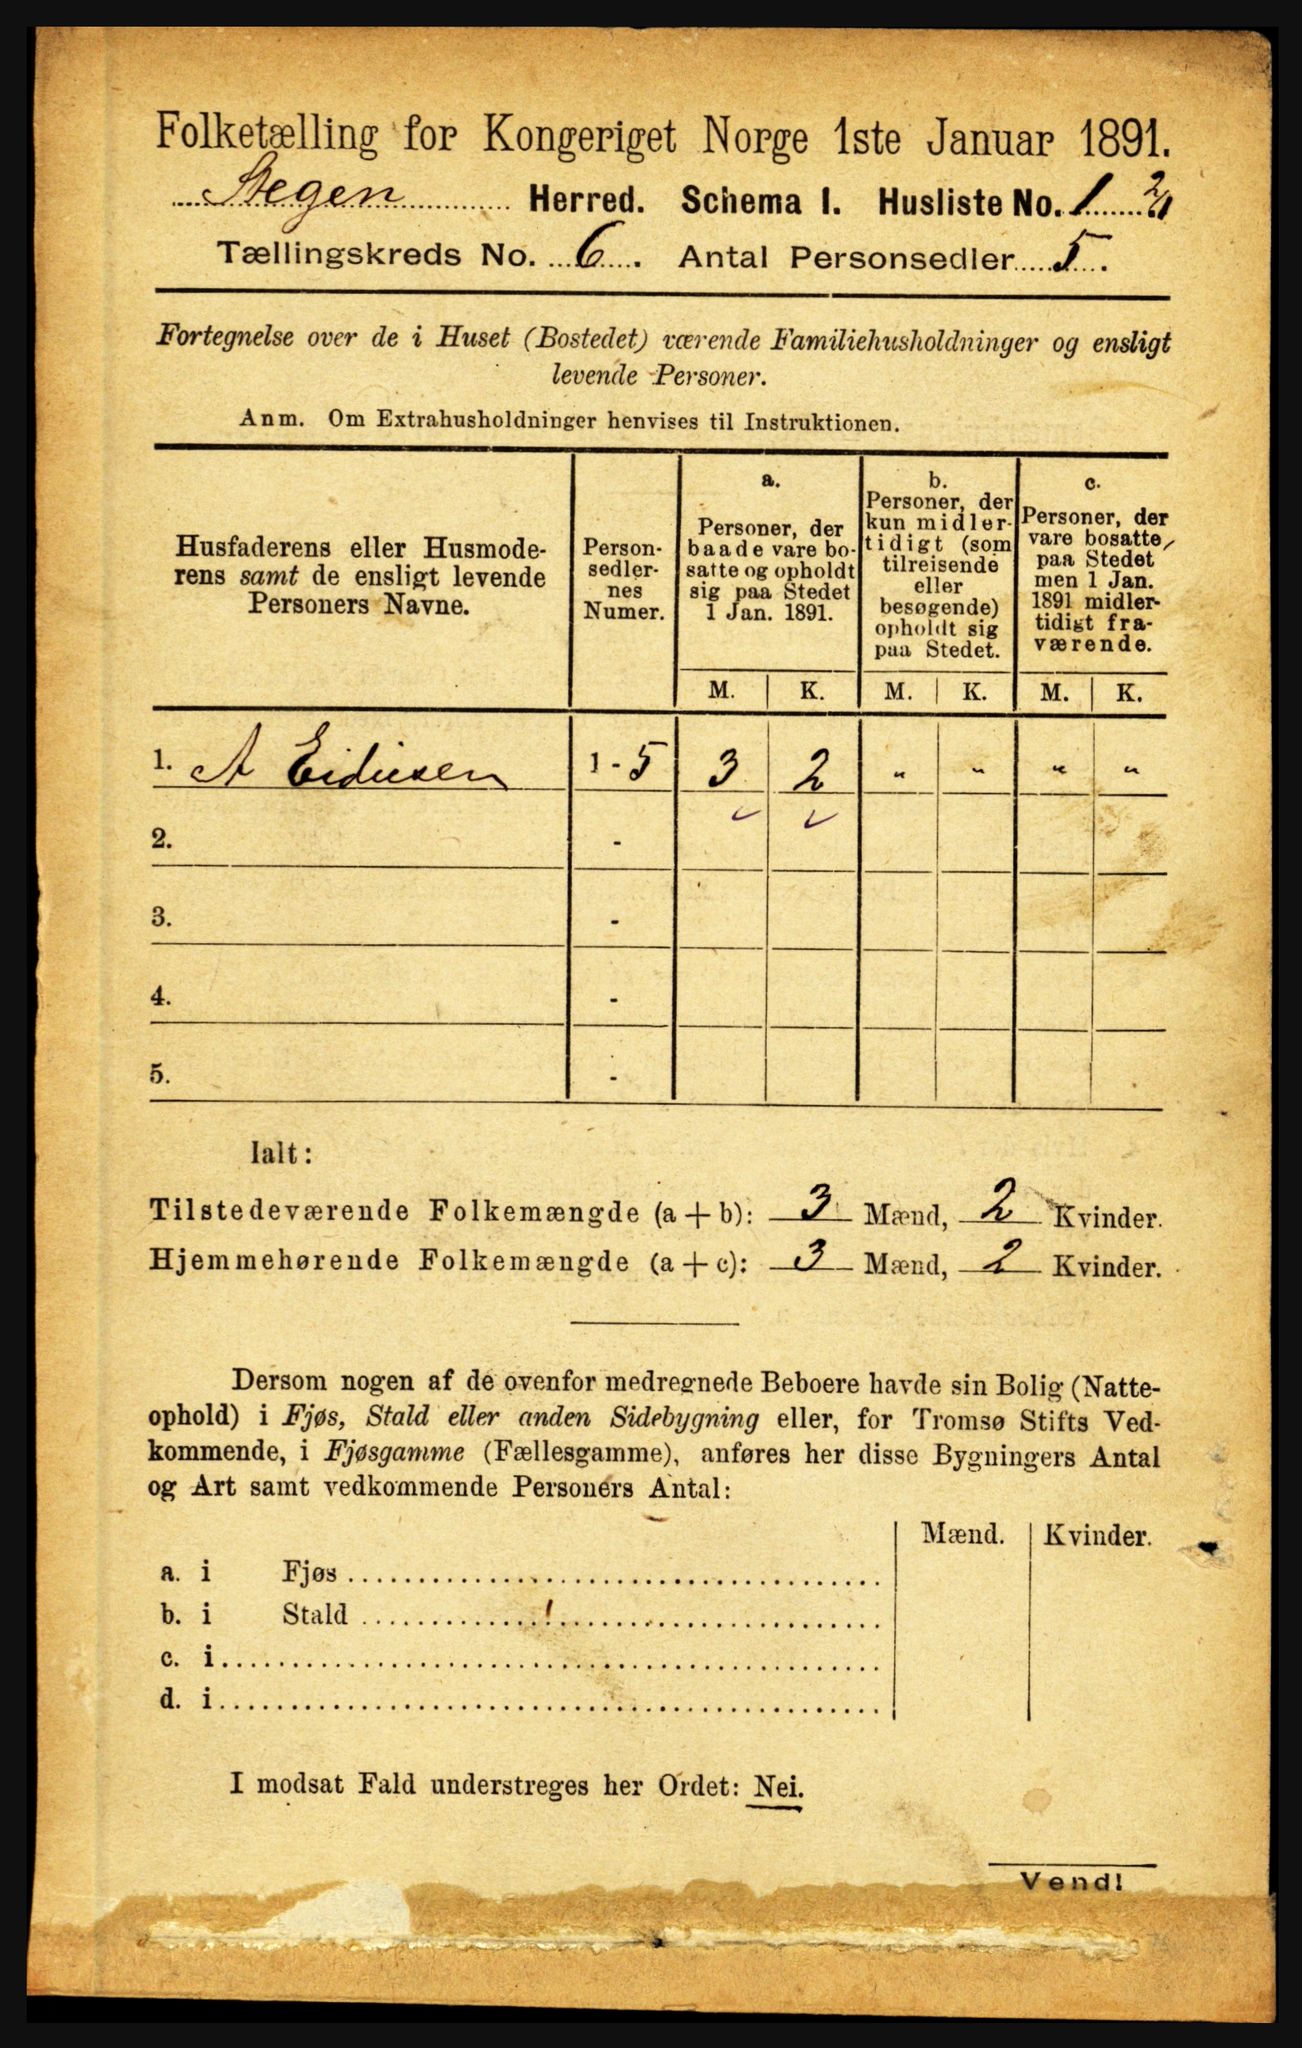 Folketælling for Kongeriget Norge 1ste Januar 1891.
Stegen Herred. Schema I. Husliste No. 1
Tællingskreds No. 6. Antal Personsedler 5.
Fortegnelse over de i Huset (Bostedet) værende Familiehusholdninger og ensligt
levende Personer.
Anm. Om Extrahusholdninger henvises til Instruktionen.
Husfaderens eller Husmode-
rens samt de ensligt levende
Personers Navne.
Person-
sedler-
nes
Numer.
a.
Personer, der
baade vare bo-
satte og opholdt
sig paa Stedet
1 Jan. 1891.
b.
Personer, der
kun midler-
tidigt (som
tilreisende
eller
besøgende)
opholdt sig
paa Stedet.
c.
Personer, der
vare bosatte
paa Stedet
men 1 Jan.
1891 midler-
tidigt fra-
værende.
M. K. M. K. M. K.
1. A Eidiesen 1-5 3 2 " " " "
2. -
3. -
4. -
5. -
Ialt:
Tilstedeværende Folkemængde (a + b): 3 Mænd, 2 Kvinder.
Hjemmehørende Folkemængde (a + c): 3 Mænd, 2 Kvinder.
Dersom nogen af de ovenfor medregnede Beboere havde sin Bolig (Natte-
ophold) i Fjøs, Stald eller anden Sidebygning eller, for Tromsø Stifts Ved-
kommende, i Fjøsgamme (Fællesgamme), anføres her disse Bygningers Antal
og Art samt vedkommende Personers Antal:
Mænd. Kvinder.
a. i Fjøs
b. i Stald
c. i
d. i
I modsat Fald understreges her Ordet: Nei.
Vend!